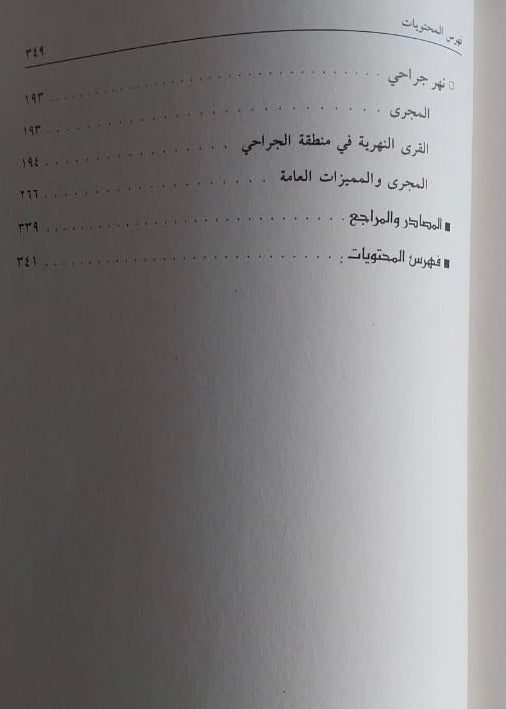 فهرس المحتويات ٣٤٩
□ نهر جراحي . . . . . . . . . . . . . . . . . . . . ١٩٣
المجرى . . . . . . . . . . . . . . . . . . . . ١٩٣
القرى النهرية في منطقة الجراحي . . . . . . . . . . . . . . . . ١٩٤
المجرى والمميزات العامة . . . . . . . . . . . . . . . . . . ٢٦٦
■ المصادر والمراجع . . . . . . . . . . . . . . . . . . . . ٣٣٩
■ فهرس المحتويات . . . . . . . . . . . . . . . . . . . . ٣٤١